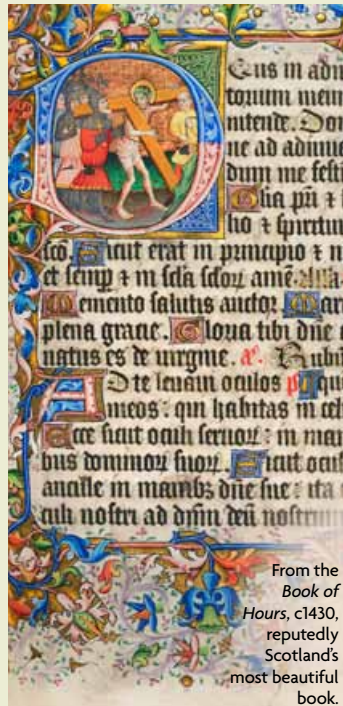 Eus in adiu
torium meum
intende. Don
ne ad adiuua
dum me festi
Glia pri ⁊ f
lio ⁊ spiritui
sco. Sicut erat in principio ⁊ n
et semp ⁊ in scla sclor amē.
Memento salutis auctor Mari
plena gracie. Gloria tibi dne
natus es de virgine. Rubū
D te leuaui oculos qui
meos : qui habitas in cel
Ecce sicut oculi seruor : in man
bus dominor suor. Sicut ocul
ancille in manibz dne sue : ita
culi nostri ad dnm deū nostrum
From the
Book of
Hours, c1430,
reputedly
Scotland's
most beautiful
book.